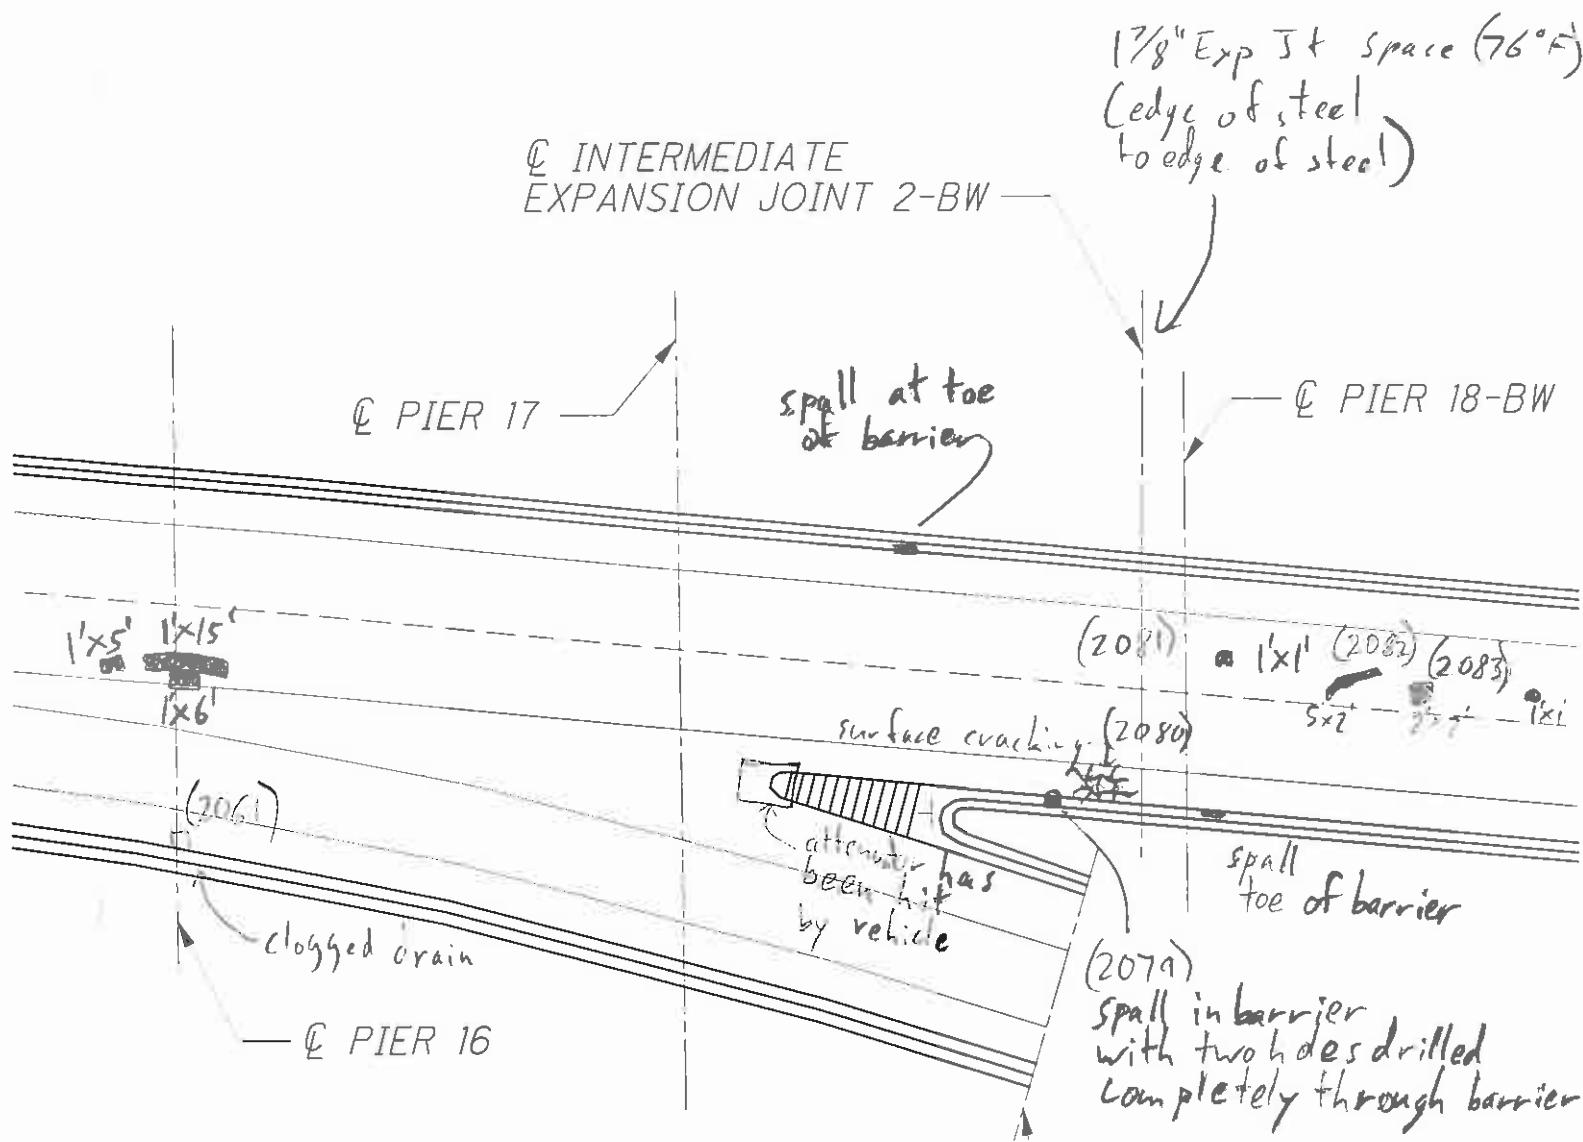 1 7/8" Exp Jt space (76°F)
(edge of steel
to edge of steel)
℄ INTERMEDIATE
EXPANSION JOINT 2-BW
℄ PIER 17
spall at toe
of barrier
℄ PIER 18-BW
1'x5'
1'x15'
1'x6'
(2081)
1'x1'
(2082)
(2083)
5x2'
1'x1'
surface cracking (2080)
(2061)
attenuator has
been hit
by vehicle
spall
toe of barrier
clogged drain
(2079)
spall in barrier
with two holes drilled
completely through barrier
℄ PIER 16